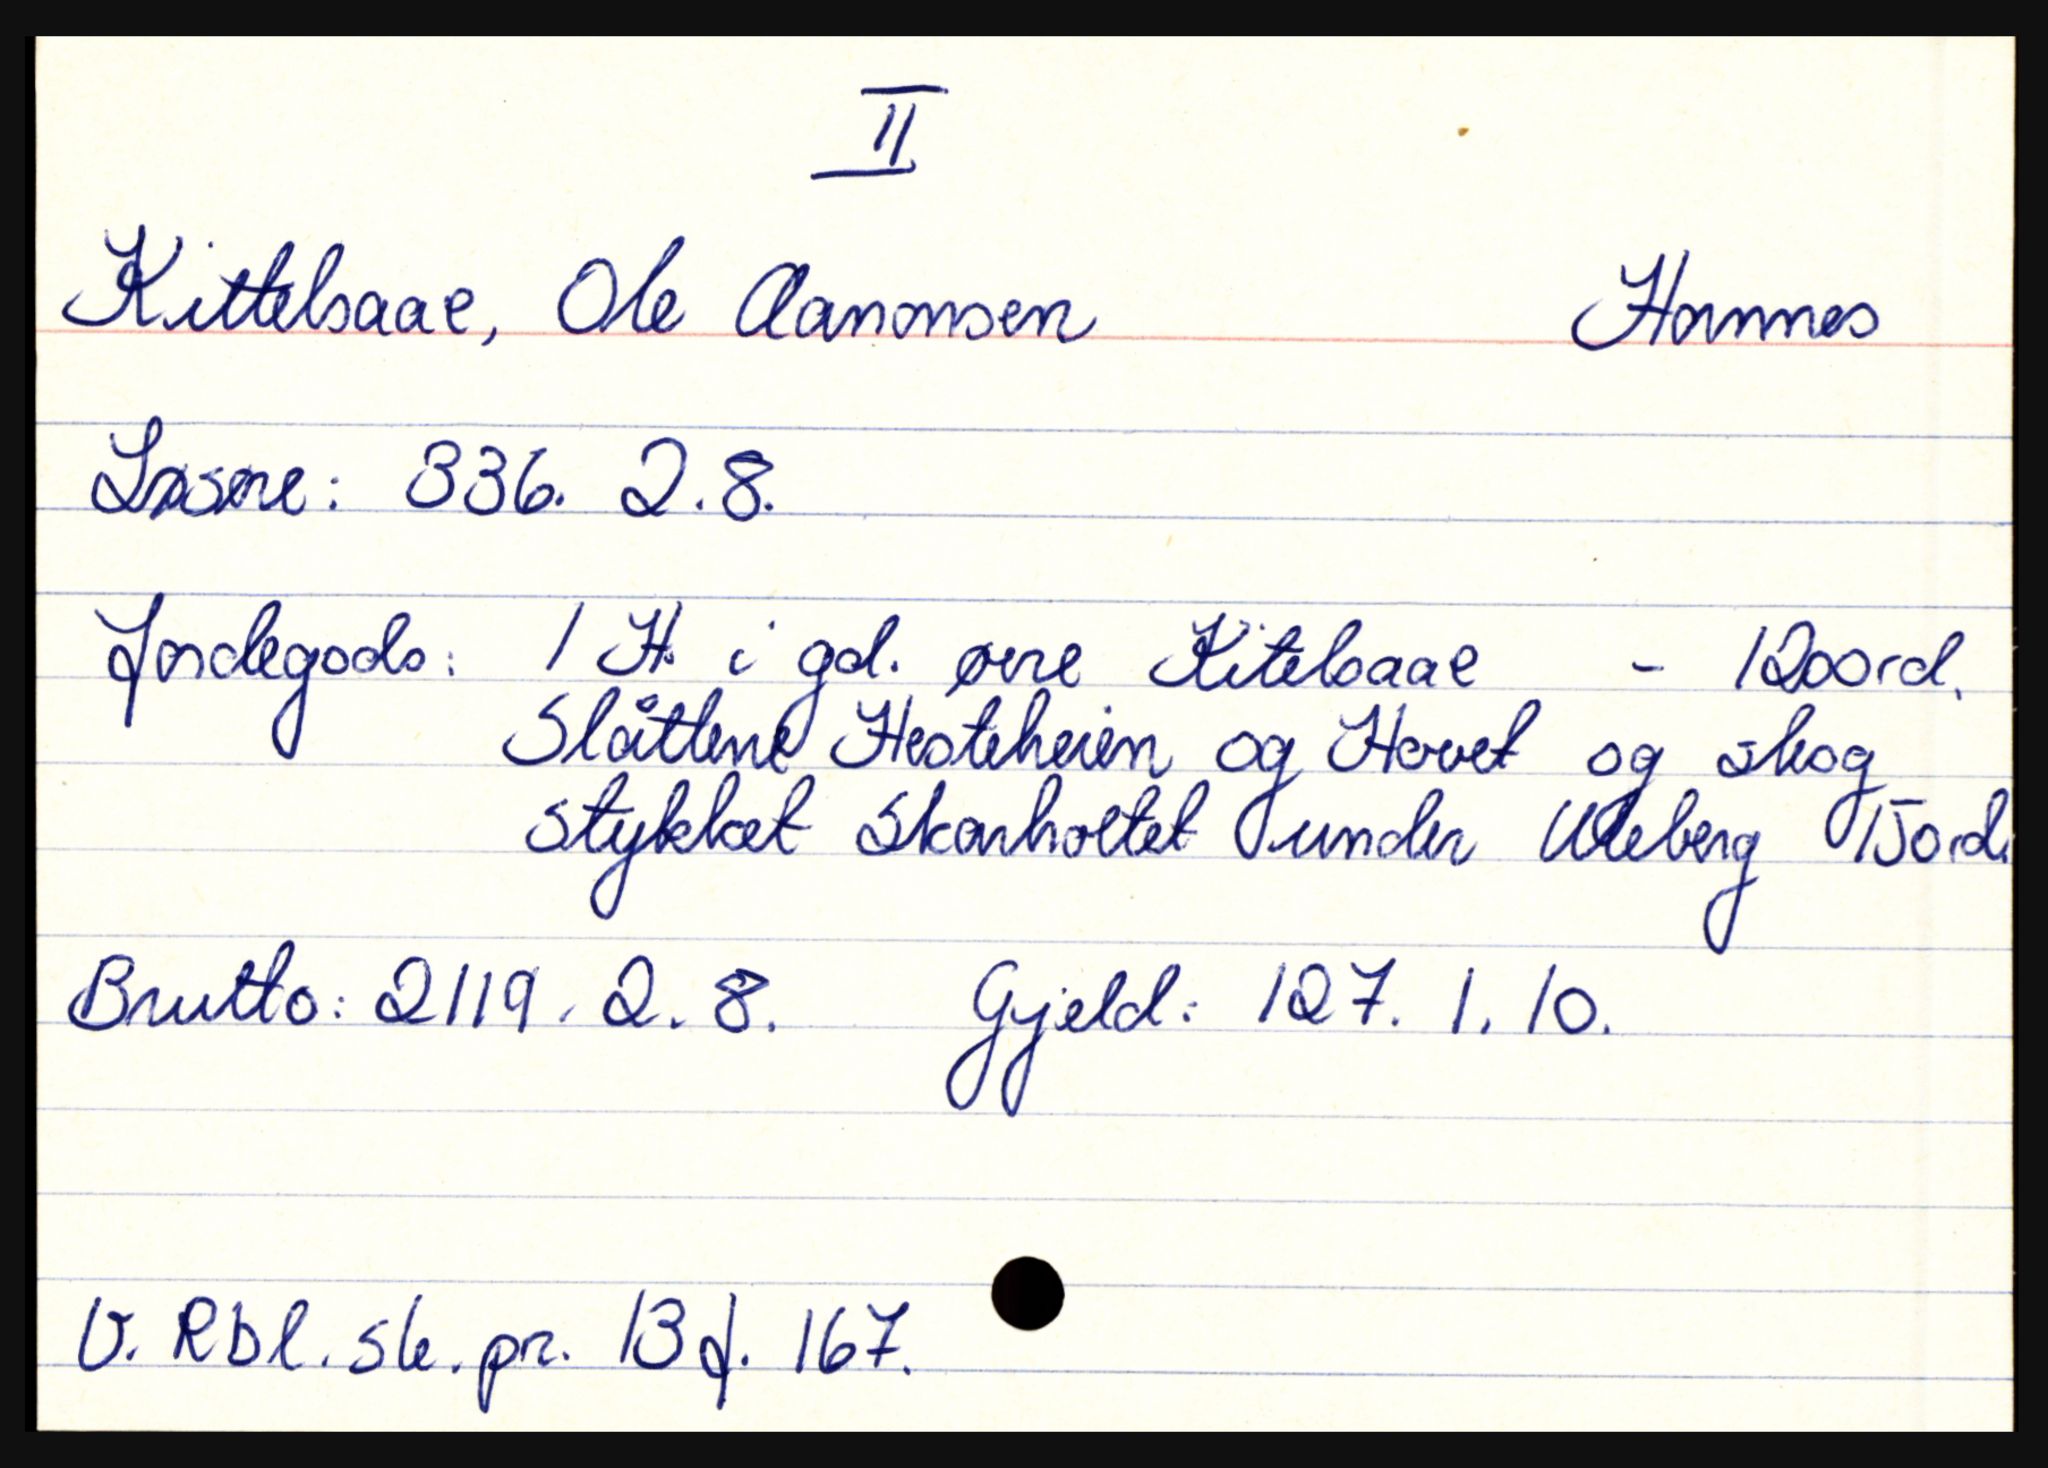 II
Kittelsaae, Ole Aanonsen Hornnes
Løsøre: 336. 2.8.
Jordegods: 1 H. i gd. øvre Kitelsaae - 1200rd.
Slåttene Hesteheien og Hovet og skog
stykket Skarholtet under Uleberg 150rd.
Brutto: 2119. 2. 8. Gjeld: 127. 1. 10.
V. Rbl. sk. pr. 13 f. 167.